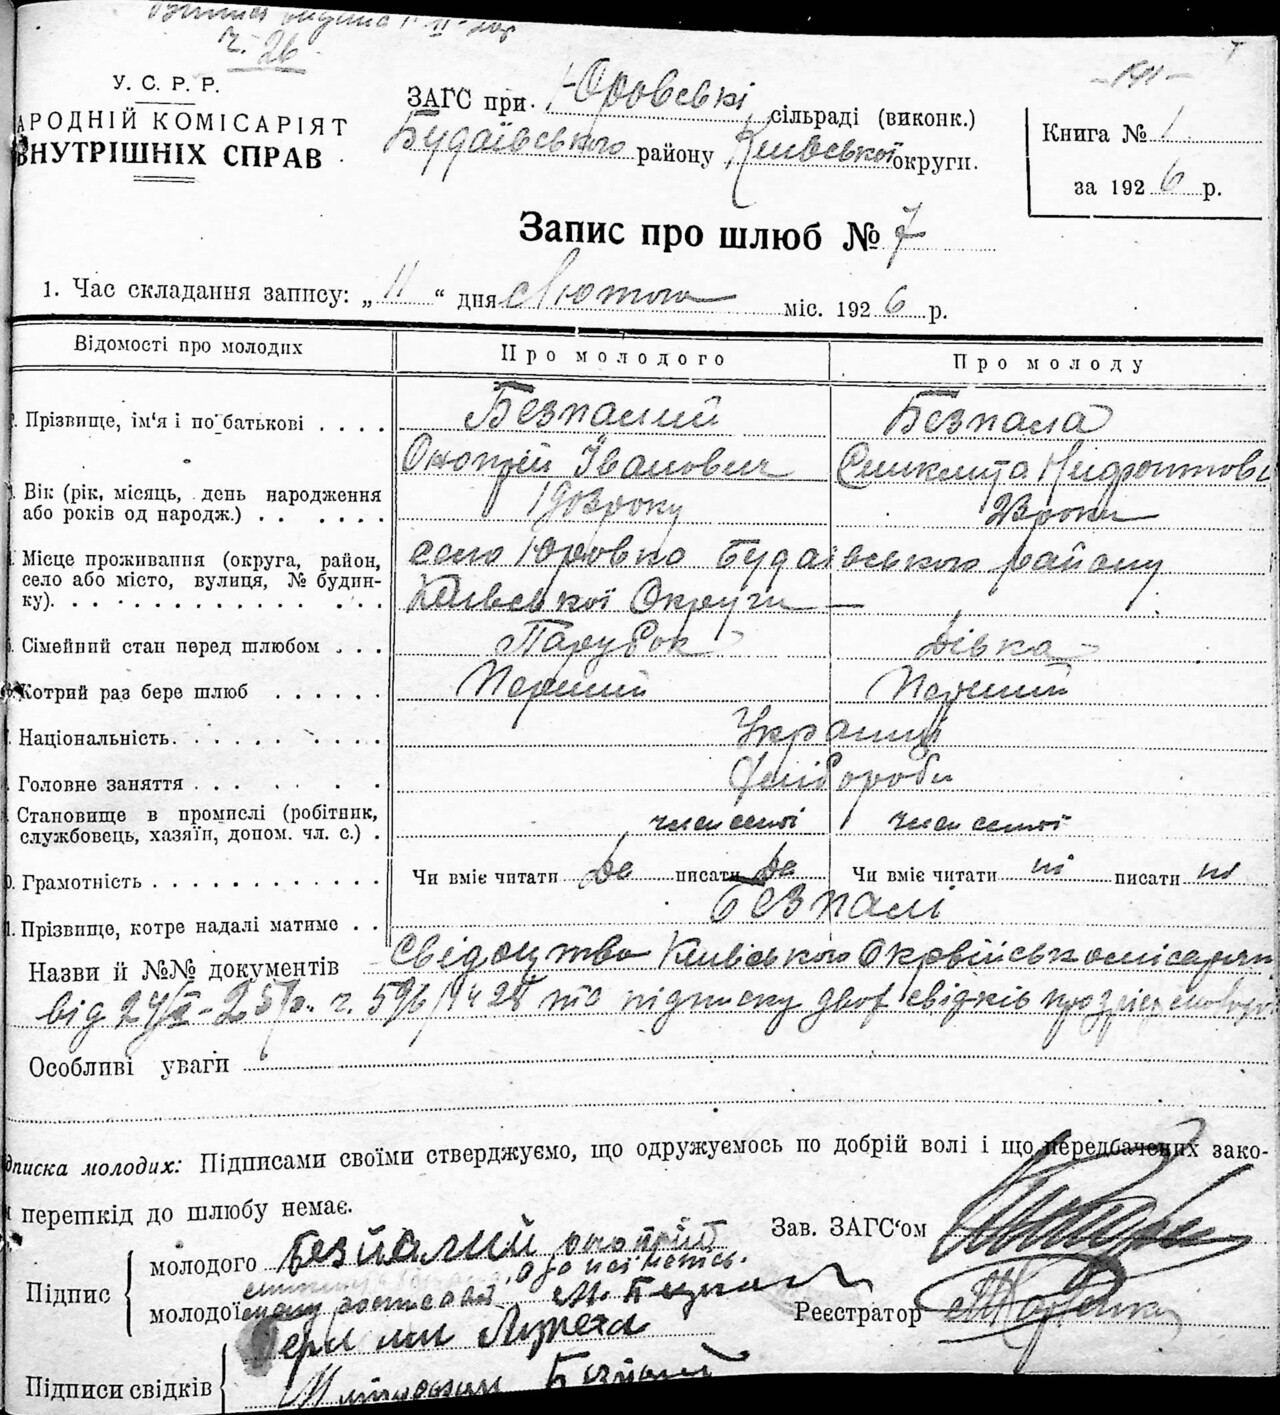 ч. 26
У. С. Р. Р.
АРОДНІЙ КОМІСАРІЯТ
ВНУТРІШНІХ СПРАВ
ЗАГС при Юровські сільраді (виконк.)
Будаївського району Київської округи.
Книга № 1
за 1926 р.
Запис про шлюб № 7
1. Час складання запису: „11“ дня Лютого міс. 1926 р.
Відомості про молодих
Про молодого
Про молоду
Прізвище, ім‘я і по батькові
Безпалий
Безпала
Онопрій Іванович
Вік (рік, місяць, день народження
або років од народж.)
1903 року
23 роки
Місце проживання (округа, район,
село або місто, вулиця, № будин-
ку).
село Юровка Будаївського району
Київської Округи —
Сімейний стан перед шлюбом
Парубок
Дівка
Котрий раз бере шлюб
Перший
Перший
Національність
Українці
Головне заняття
Хлібороби
Становище в промислі (робітник,
службовець, хазяїн, допом. чл. с.)
член семьї
член семьї
Грамотність
Чи вміє читати Да писати Да
Чи вміє читати ні писати ні
Прізвище, котре надалі матиме
Безпалі
Назви й №№ документів
Свідоцтво Київського Окрвійськомісаріят
від 24/ІХ-25 р. ч. 596/1428 та підписку двох свідків про
Особливі уваги
дписка молодих: Підписами своїми стверджуємо, що одружуємось по добрій волі і що передбачених зако-
перешкід до шлюбу немає.
Зав. ЗАГС‘ом
Підпис
молодого Безпалий Онопрій
молодої
Реєстратор
Підписи свідків